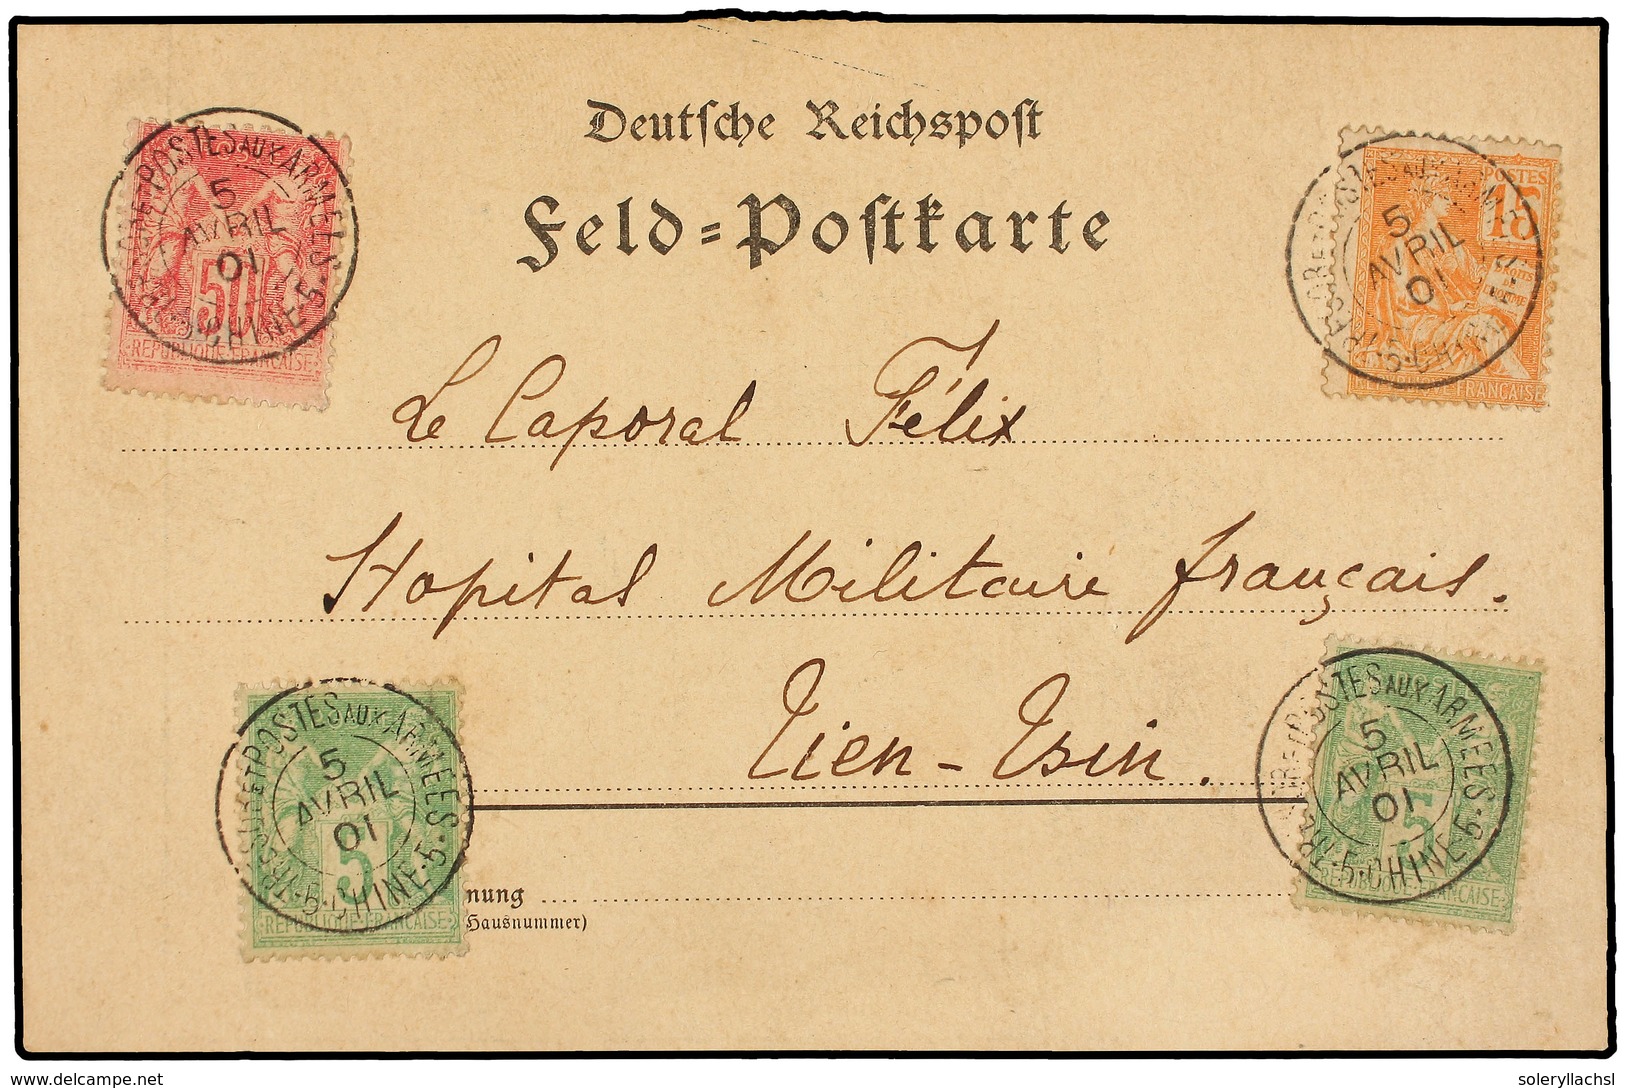 Deutsche Reichspost
Feld=Postkarte
TRESOR ET POSTES AUX ARMEES
5
AVRIL
01
5·CHINE·5
50
REPUBLIQUE FRANCAISE
POSTES AUX ARMEES
5
AVRIL
01
5·CHINE
POSTES
15
DROITS
DE
L'HOMME
REPUBLIQUE FRANÇAISE
Le Caporal Félix
Hopital Militaire français.
Tien-Tsin.
TRESOR ET POSTES AUX ARMEES
5
AVRIL
01
·5·CHINE·5·
5
REPUBLIQUE FRANCAISE
TRESOR ET POSTES AUX ARMEES
5
AVRIL
01
·5·CHINE·5·
5
REPUBLIQUE FRANCAISE
nung
Hausnummer)
www.delcampe.net
soleryllachsl